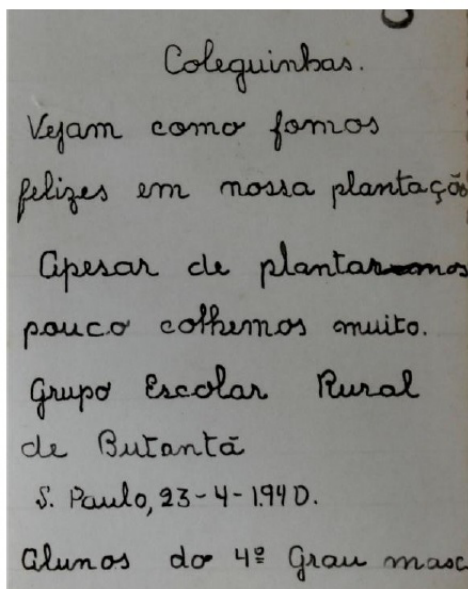 Coleguinhas.
Vejam como fomos
felizes em nossa plantação
Apesar de plantarmos
pouco colhemos muito.
Grupo Escolar Rural
de Butantã
S. Paulo, 23-4-1940.
Alunos do 4º Grau masc